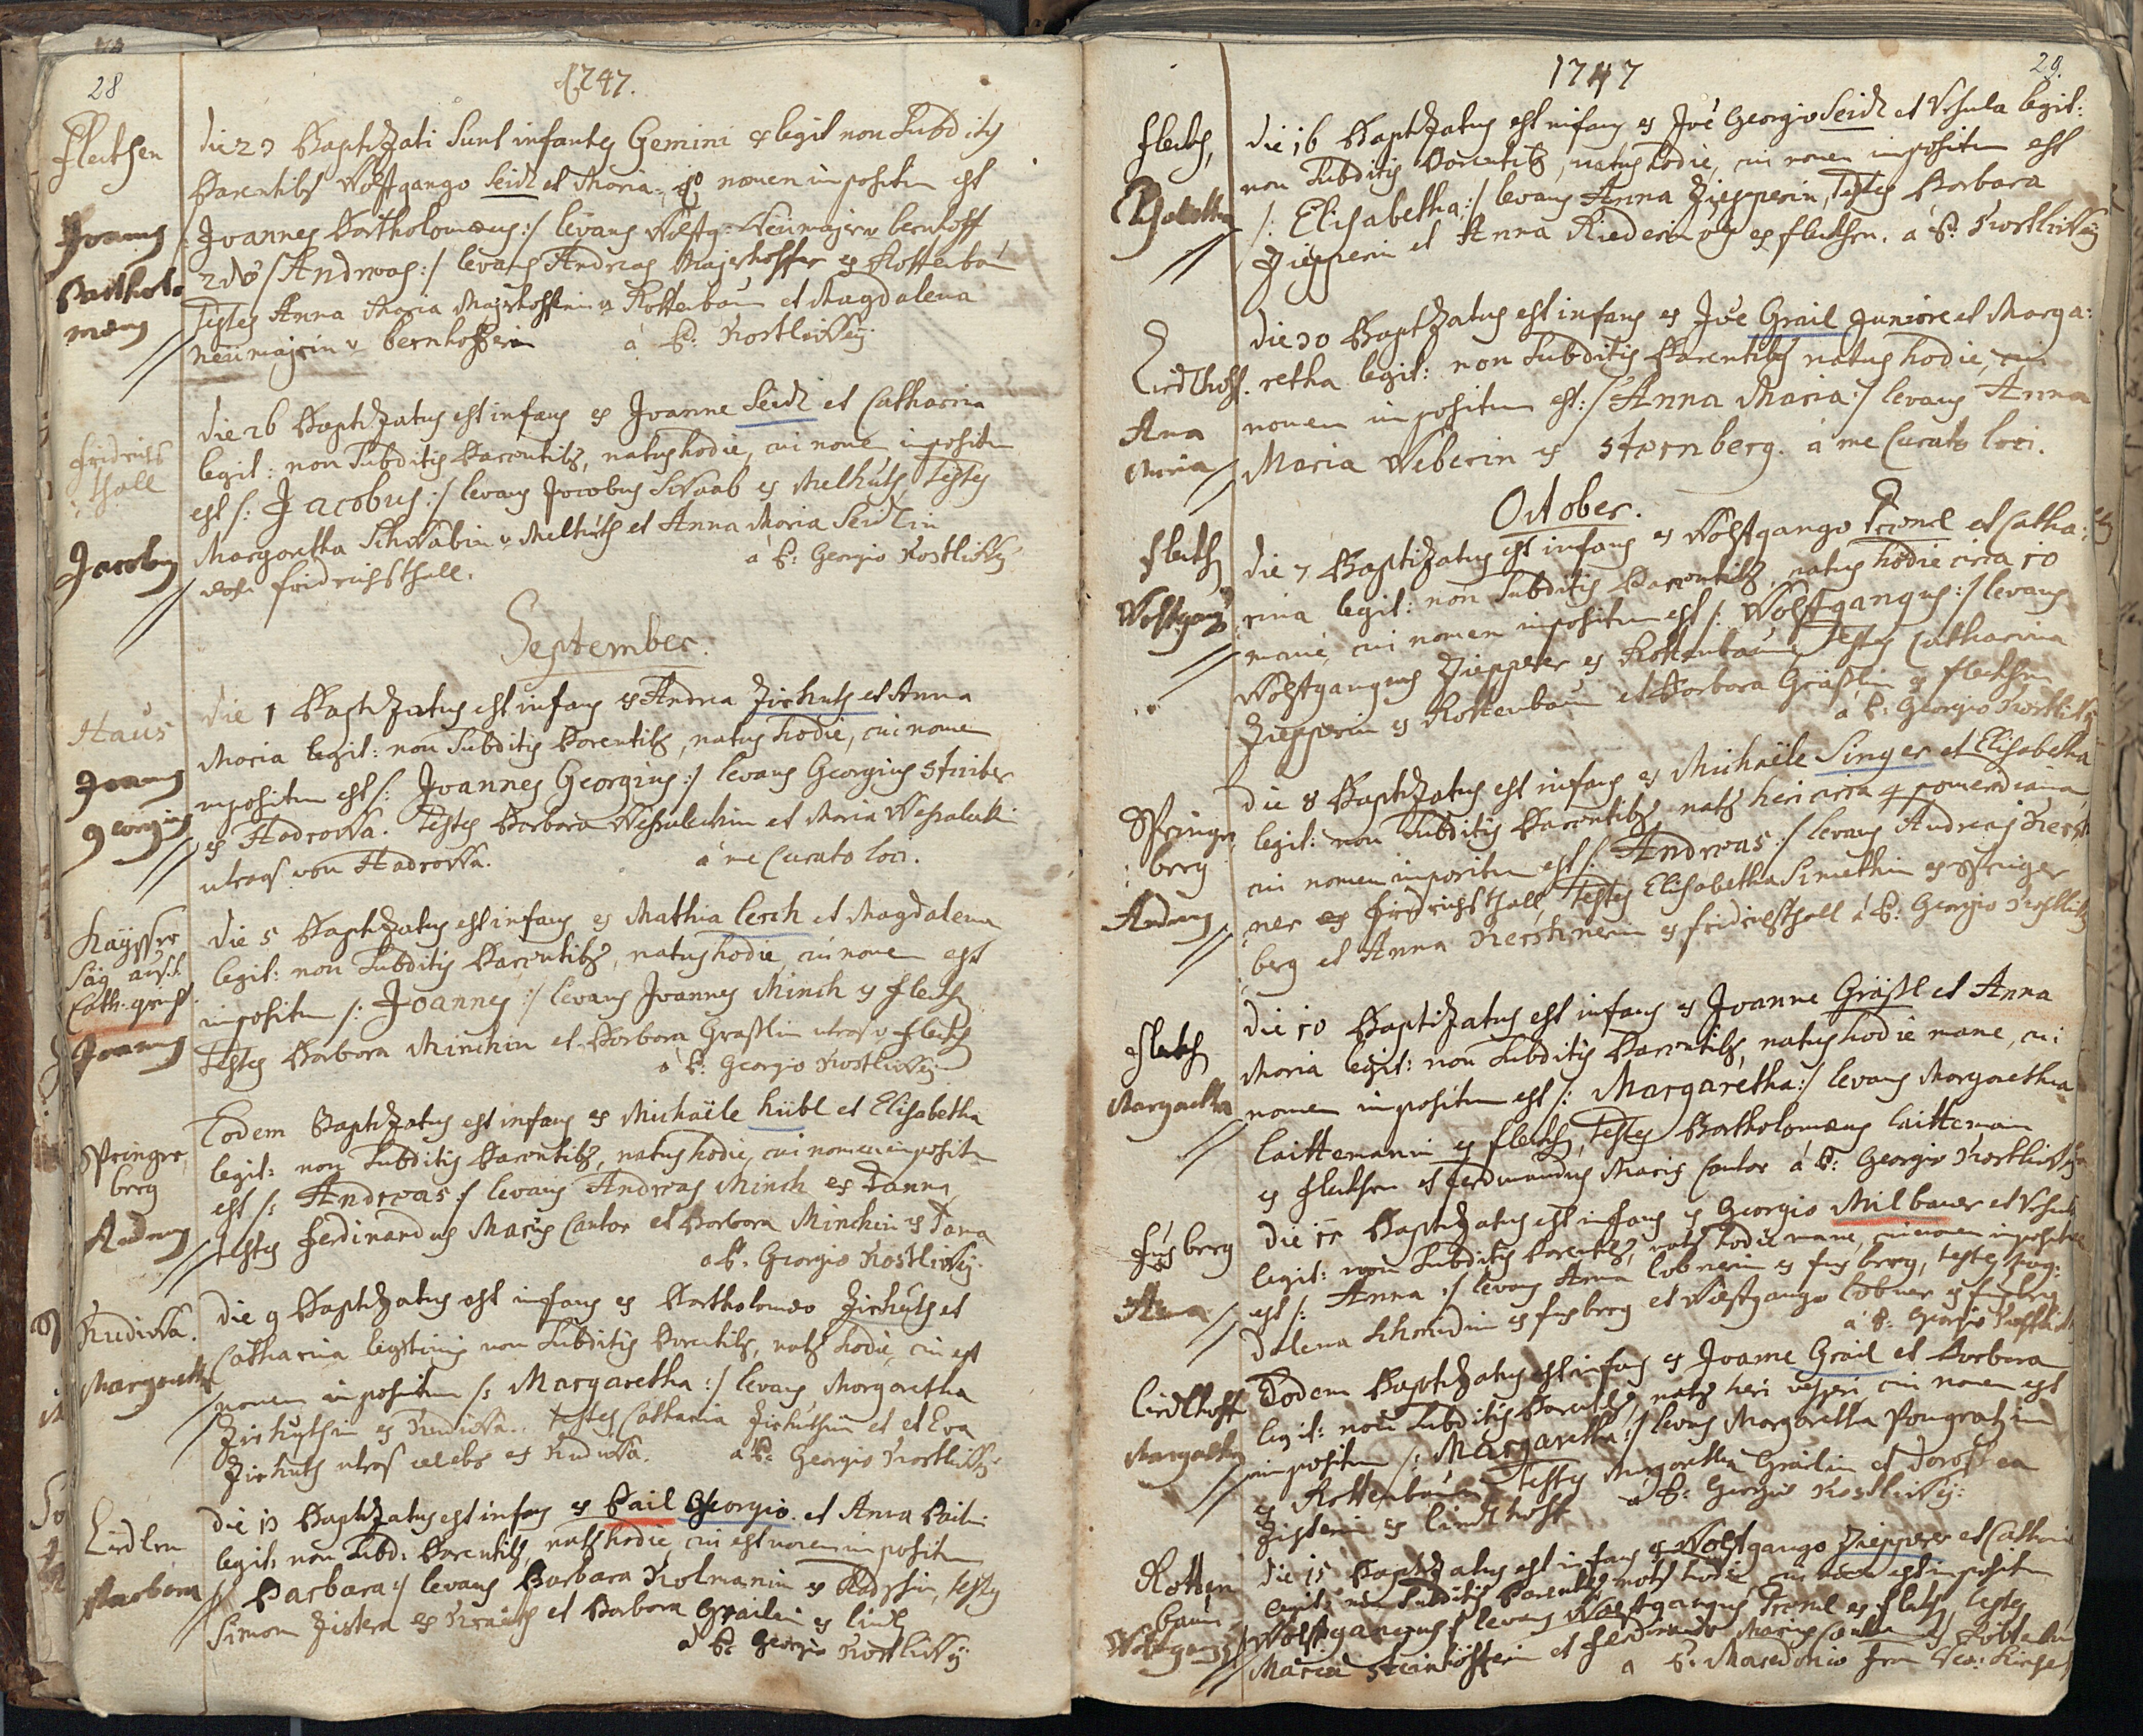 28
1747.
Flecken
Joannes
Bartholo
maeus
die 23 Baptizati sunt infantes Gemini ex legit non Subditis
Parentibus Wolfgango Seidl et Maria, 1o nomen impositum est
Joannes Bartholomaeus :/ levans Wolfg: Neumajer v bernhoff
2do / Andreas :/ levans Andreas Majerhoffer ex Rottenbaum
Testes Anna Maria Majerhofferin v Rottenbaum et Magdalena
Neumajerin v bernhofferin a P: Kostlivÿ
Fridrichs
thall
Jacobus
die 26 Baptizatus est infans ex Joanne Seidl et Catharina
legit: non Subditis Parentibus, natus hodie, cui nomen impositum
est /: Jacobus :/ levans Jacobus Schwab ex Melhuth, Testes
Margaretha Schwabin v Melhuth et Anna Maria Seidlin
von Fridrichsthall. a P: Georgio Kostlivÿ
September.
Haus
Joannes
Georgius
die 1 Baptizatus est infans ex Andrea Zirhuth et Anna
Maria legit: non Subditis Parentibus, natus hodie, cui nomen
impositum est /: Joannes Georgius :/ levans Georgius Stuiber
ex Hadrowa. Testes Barbara et Maria
utraque von Hadrowa. a me Curato loci.
Kaÿsser
Säg
Cath.
Joannes
die 5 Baptizatus est infans ex Mathia Lerch et Magdalena
legit: non Subditis Parentibus, natus hodie, cui nomen est
impositum /: Joannes :/ levans Joannes Minch ex Fleck
Testes Barbara Minchin et Barbara Graßlin utraque v Fleck
a P: Georgio Kostlivÿ
Springen
berg
Andreas
Eodem Baptizatus est infans ex Michaële Hübl et Elisabetha
legit: non Subditis Parentibus, natus hodie, cui nomen impositum
est /: Andreas :/ levans Andreas Minch ex Tanna
testes Ferdinandus Maris Cantor et Barbara Minchin ex Tana
a P. Georgio Kostlivÿ
Kudiwa.
Margareth
die 9 Baptizatus est infans ex Bartholomeo Zirhuth et
Catharina legitimis non Subditis Parentibus, natus hodie, cui est
nomen impositum /: Margaretha :/ levans Margaretha
Zirhuthin ex Kudiwa. testes Catharina Zirhuthin et et Eva
Zirhuth utraque caelebs ex Kudiwa. a P: Georgio Kostlivÿ
Barbara
die 13 Baptizatus est infans ex Pail Georgio et Anna
legit: non Subd: Parentibus, natus hodie, cui est nomen impositum
/: Barbara :/ levans Barbara Kolmanin ex, testes
Simon Zistera ex et Barbara Grailin ex Lindl
a P: Georgio Kostlivÿ
1747
29.
Fleck,
Elisabetha
die 16 Baptizatus est infans ex Joe Georgio Seidl et Ursula legit:
non Subditis Parentibus, natus hodie, cui nomen impositum est
/: Elisabetha :/ levans Anna Ziepperin, Testes Barbara
Ziepperin et Anna Riederin ex Flecken. a P: Kostlivÿ
Lindlhoff.
Ana
Maria
die 30 Baptizatus est infans ex Joe Grail Juniore et Marga:
retha legit: non Subditis Parentibus natus hodie, cui
nomen impositum est :/ Anna Maria :/ levans Anna
Maria Weberin ex Sternberg. a me Curato loci.
October.
Fleck
Wolfgang
die 7 Baptizatus est infans ex Wolfgango et Catha:
rina legit: non Subditis Parentibus, natus hodie circa 10
mane, cui nomen impositum est /: Wolfgangus :/ levans
Wolfgangus Ziepperer ex Rottenbaum Testes Catharina
Ziepperin ex Rottenbaum et Barbara Gräßlin ex Flecken
a P: Georgio Kostlivÿ
Springen
berg
Andreas
die 8 Baptizatus est infans ex Michaële Singer et Elisabetha
legit: non Subditis Parentibus, natus heri circa 4 pomeridiana,
cui nomen impositum est /: Andreas :/ levans Andreas Kersch
ner ex Fridrichsthall, Testes Elisabetha Simethin ex Springer
berg et Anna Kerschnerin ex Fridrichsthall a P: Georgio Kostlivÿ
Fleck
Margaretha
die 10 Baptizatus est infans ex Joanne Gräßl et Anna
Maria legit: non Subditis Parentibus, natus hodie mane, cui
nomen impositum est /: Margaretha :/ levans Margaretha
Laittemanin ex Fleck, Testes Bartholomaeus Laitteman
ex Flecken et Ferdinandus Maris Cantor a P: Georgio Kostlivÿ
Fusberg
Ana
die 11 Baptizatus est infans ex Georgio Milbauer et Ursula
legit: non Subditis Parentibus, natus hodie mane, cui nomen impositum
est /: Anna :/ levans Anna Lobnerin ex Fusberg, testes Mag:
dalena ex Fusberg et Wolfgango Lobner ex Fusberg
a P: Georgio Kostlivÿ
Lindlhoff
Margaretha
Eodem Baptizatus est infans ex Joanne Grail et Barbara
legit: non Subditis Parentibus natus heri vesperi, cui nomen est
impositum /: Margaretha :/ levans Margaretha Pongratzin
ex Rottenbaum Testes Margaretha Grailin et Dorothea
Zisterin ex Lindlhoff a P: Georgio Kostlivÿ:
Rotten
baum
Wolfgang
die 15 Baptizatus est infans ex Wolfgango Ziepperer et Catharin
legit: non Subditis Parentibus natus hodie cui nomen est impositum
Wolfgangus :/ levans Wolfgangus ex Fleck, testes
Maria et Ferdinando Maris Cantor
a P. Macedonio